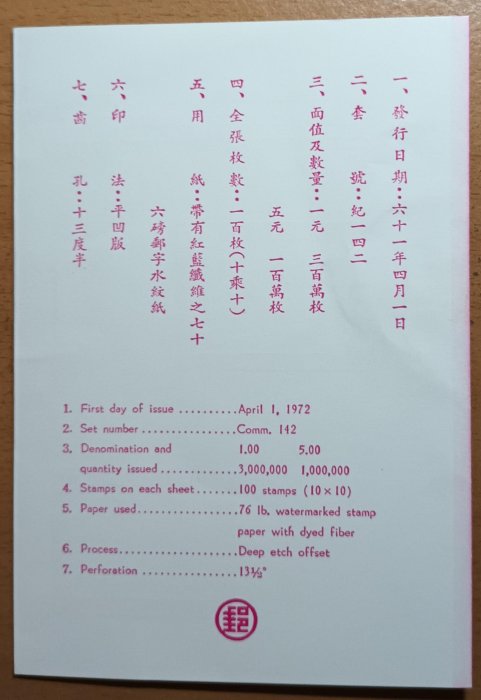 一、發行日期：六十一年四月一日
二、套號：紀一四二
三、面值及數量：一元 三百萬枚
五元 一百萬枚
四、全張枚數：一百枚（十乘十）
五、用紙：帶有紅藍纖維之七十
六磅郵字水紋紙
六、印法：平凹版
七、齒孔：十三度半
1. First day of issue ..........April 1, 1972
2. Set number ................Comm. 142
3. Denomination and 1.00 5.00
quantity issued .............3,000,000 1,000,000
4. Stamps on each sheet.......100 stamps (10×10)
5. Paper used.................76 lb. watermarked stamp
paper with dyed fiber
6. Process....................Deep etch offset
7. Perforation ................13½°
郵